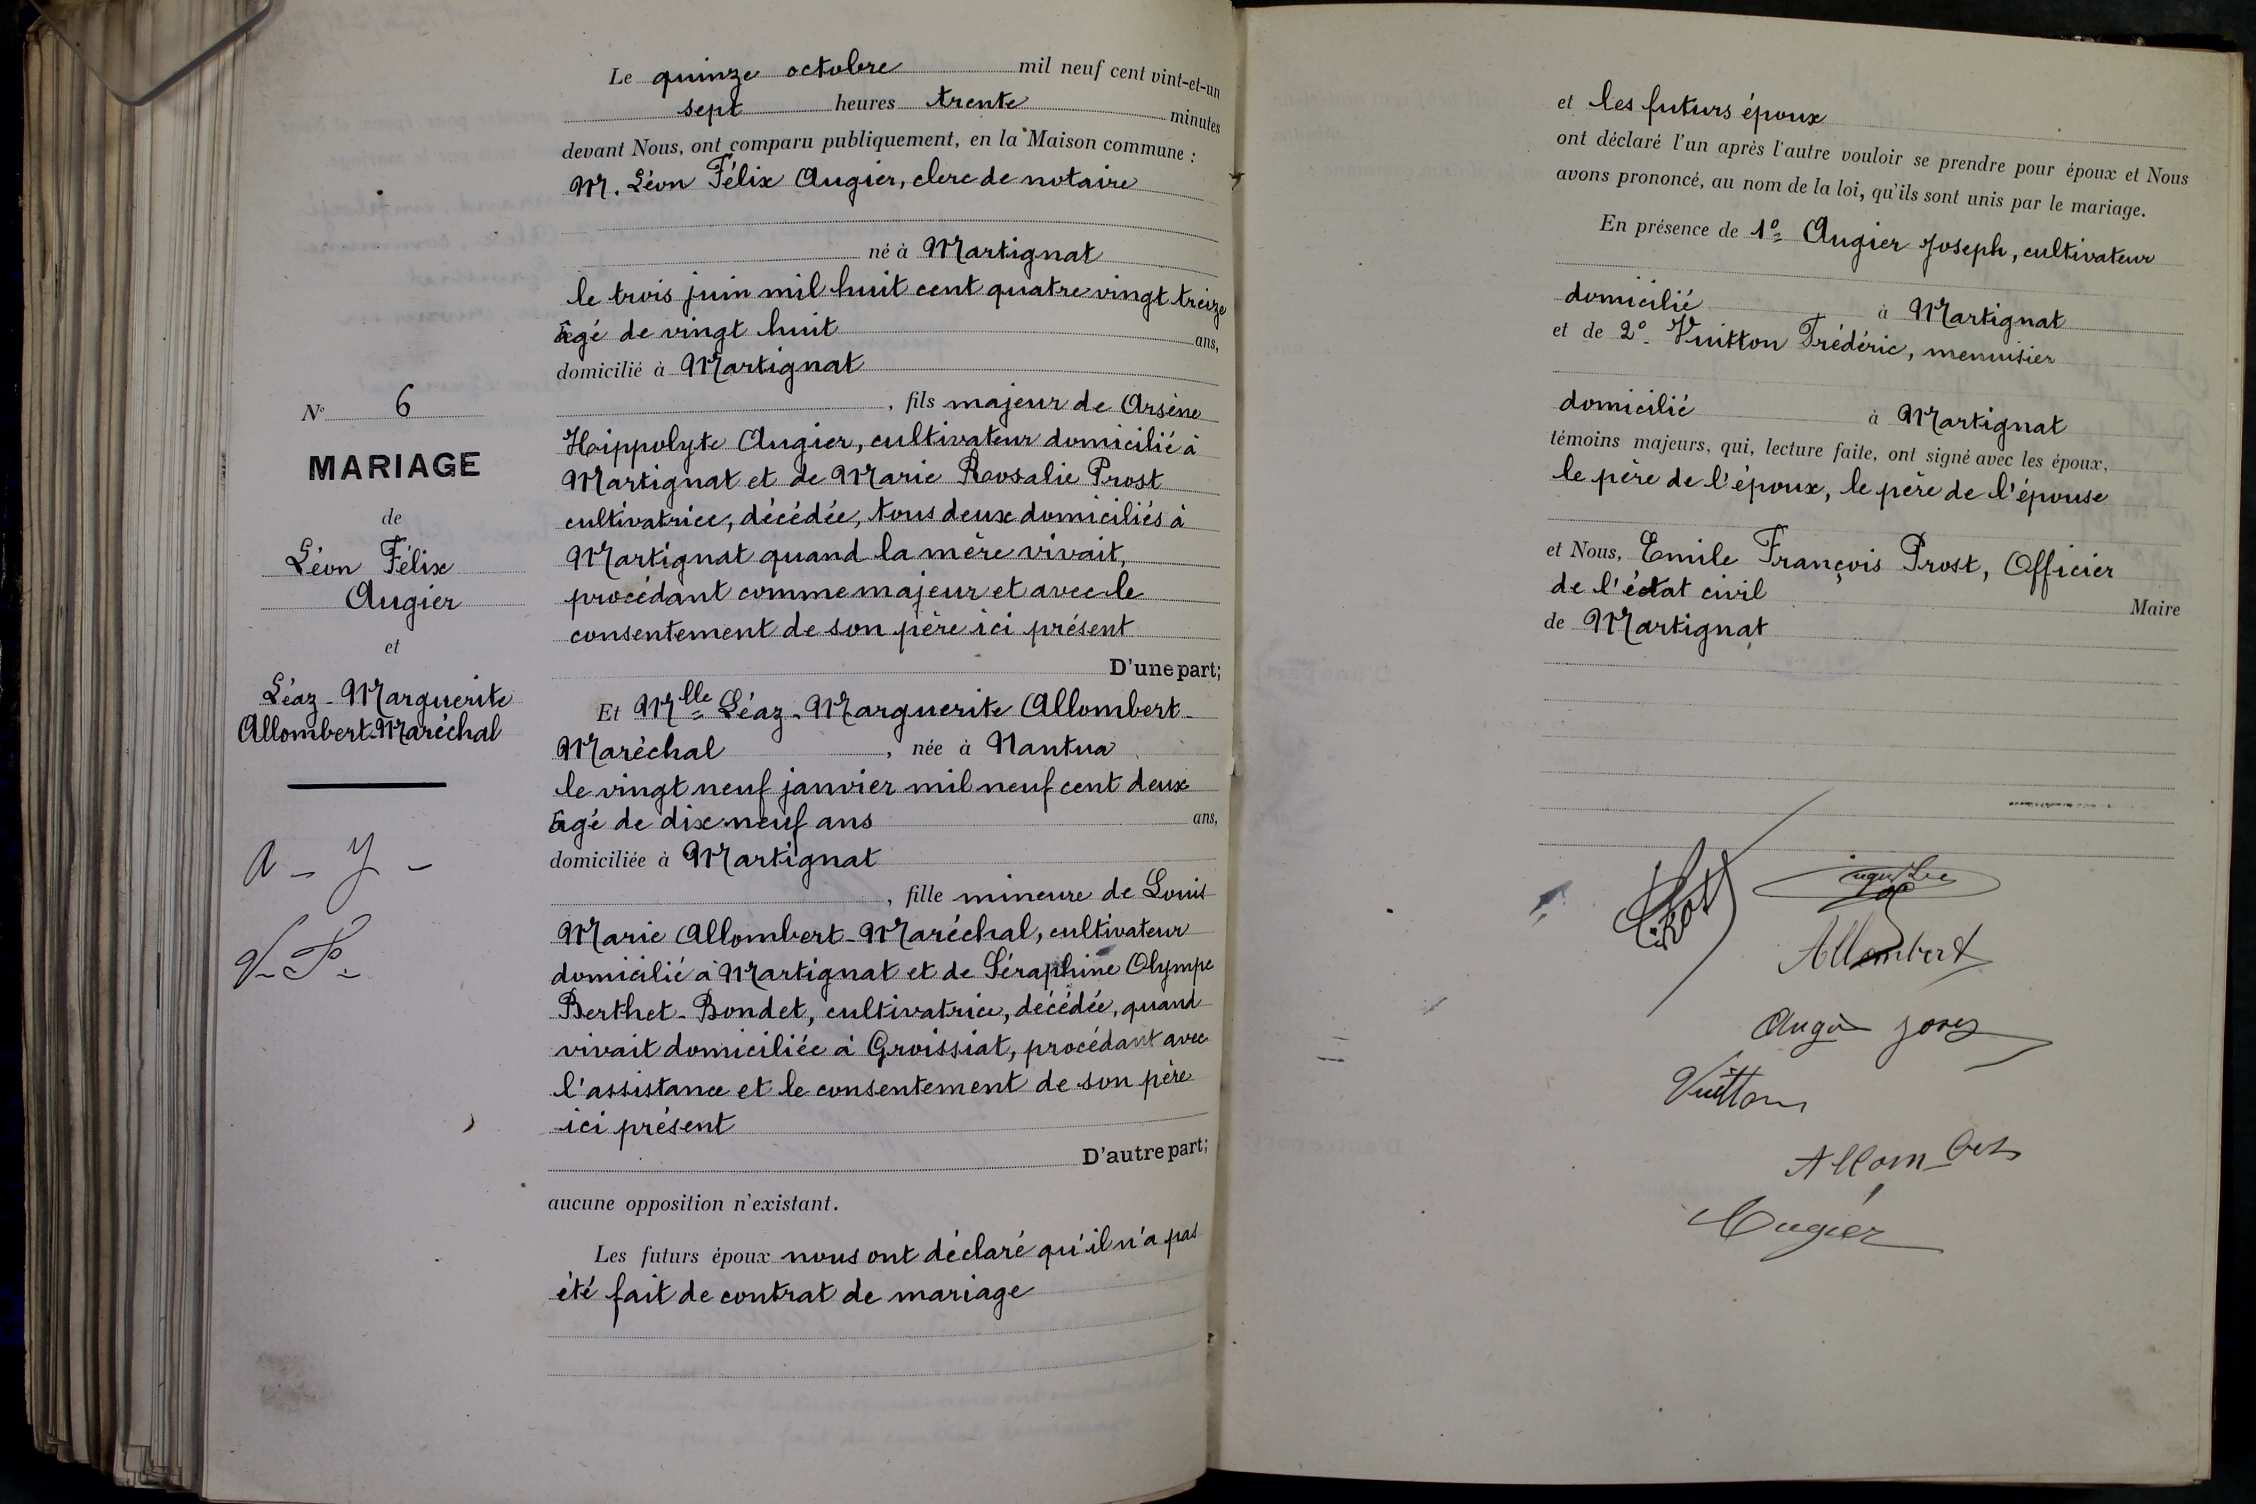 N° 6
MARIAGE
de
Léon Félix
Augier
et
Léaz-Marguerite
Allombert-Maréchal
Le quinze octobre mil neuf cent vint-et-un
sept heures trente minutes
devant Nous, ont comparu publiquement, en la Maison commune :
M. Léon Félix Augier, clerc de notaire
né à Martignat
le trois juin mil huit cent quatre vingt treize
âgé de vingt huit ans,
domicilié à Martignat
, fils majeur de Arsène
Hippolyte Augier, cultivateur domicilié à
Martignat et de Marie Rosalie Prost
cultivatrice, décédée, tous deux domiciliés à
Martignat quand la mère vivait,
procédant comme majeur et avec le
consentement de son père ici présent
D'une part;
Et Mlle Léaz-Marguerite Allombert-
Maréchal, née à Nantua
le vingt neuf janvier mil neuf cent deux
âgé de dix neuf ans ans,
domiciliée à Martignat
, fille mineure de Louis
Marie Allombert-Maréchal, cultivateur
domicilié à Martignat et de Séraphine Olympe
Berthet-Bondet, cultivatrice, décédée, quand
vivait domiciliée à Groissiat, procédant avec
l'assistance et le consentement de son père
ici présent
D'autre part;
aucune opposition n'existant.
Les futurs époux nous ont déclaré qu'il n'a pas
été fait de contrat de mariage
et les futurs époux
ont déclaré l'un après l'autre vouloir se prendre pour époux et Nous
avons prononcé, au nom de la loi, qu'ils sont unis par le mariage.
En présence de 1° Augier Joseph, cultivateur
domicilié à Martignat
et de 2° Vuitton Frédéric, menuisier
domicilié à Martignat
témoins majeurs, qui, lecture faite, ont signé avec les époux,
le père de l'époux, le père de l'épouse
et Nous, Emile François Prost, Officier
de l'état civil Maire
de Martignat
Allombert
Vuitton
Augier